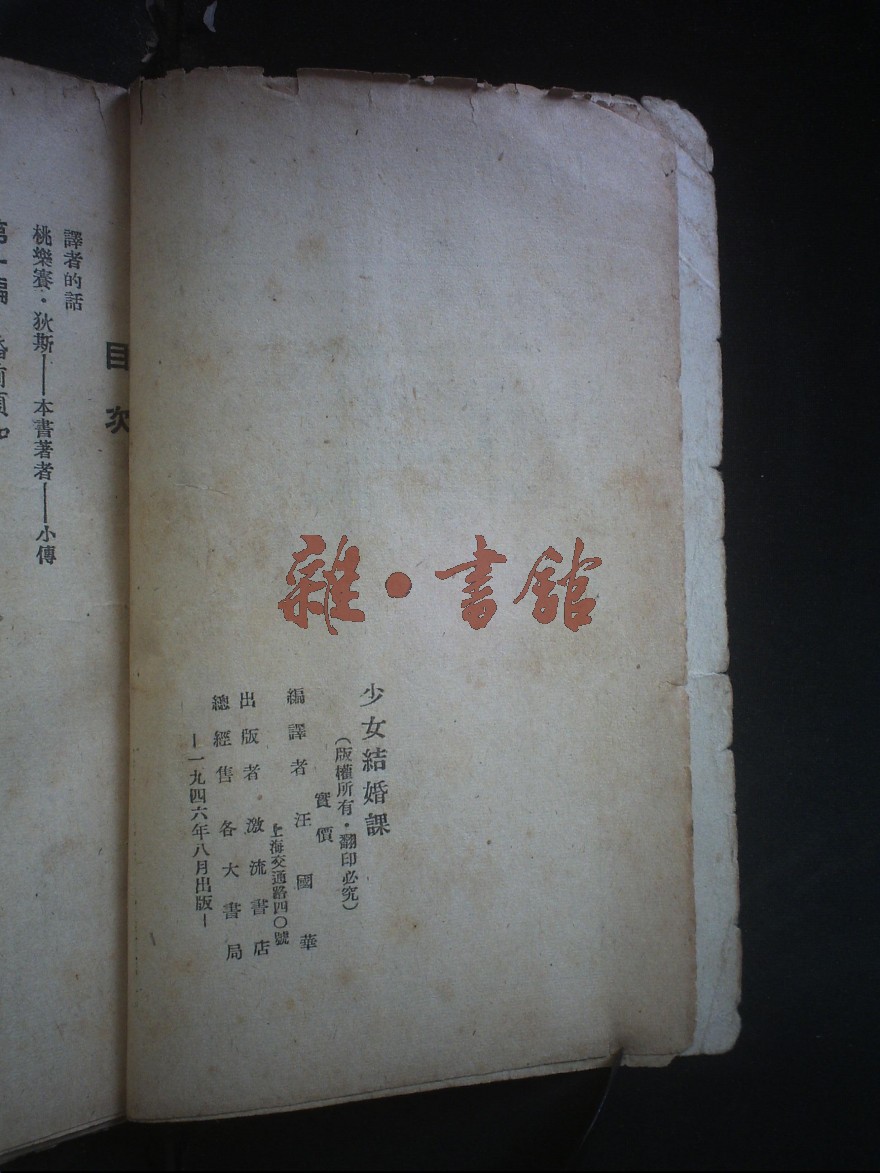 雜·書館
少女結婚課
（版權所有·翻印必究）
實價
編譯者汪國華
上海交通路四〇號
出版者激流書店
總經售各大書局
一九四六年八月出版
目次
譯者的話
桃樂賽·狄斯——本書著者——小傳
第一編